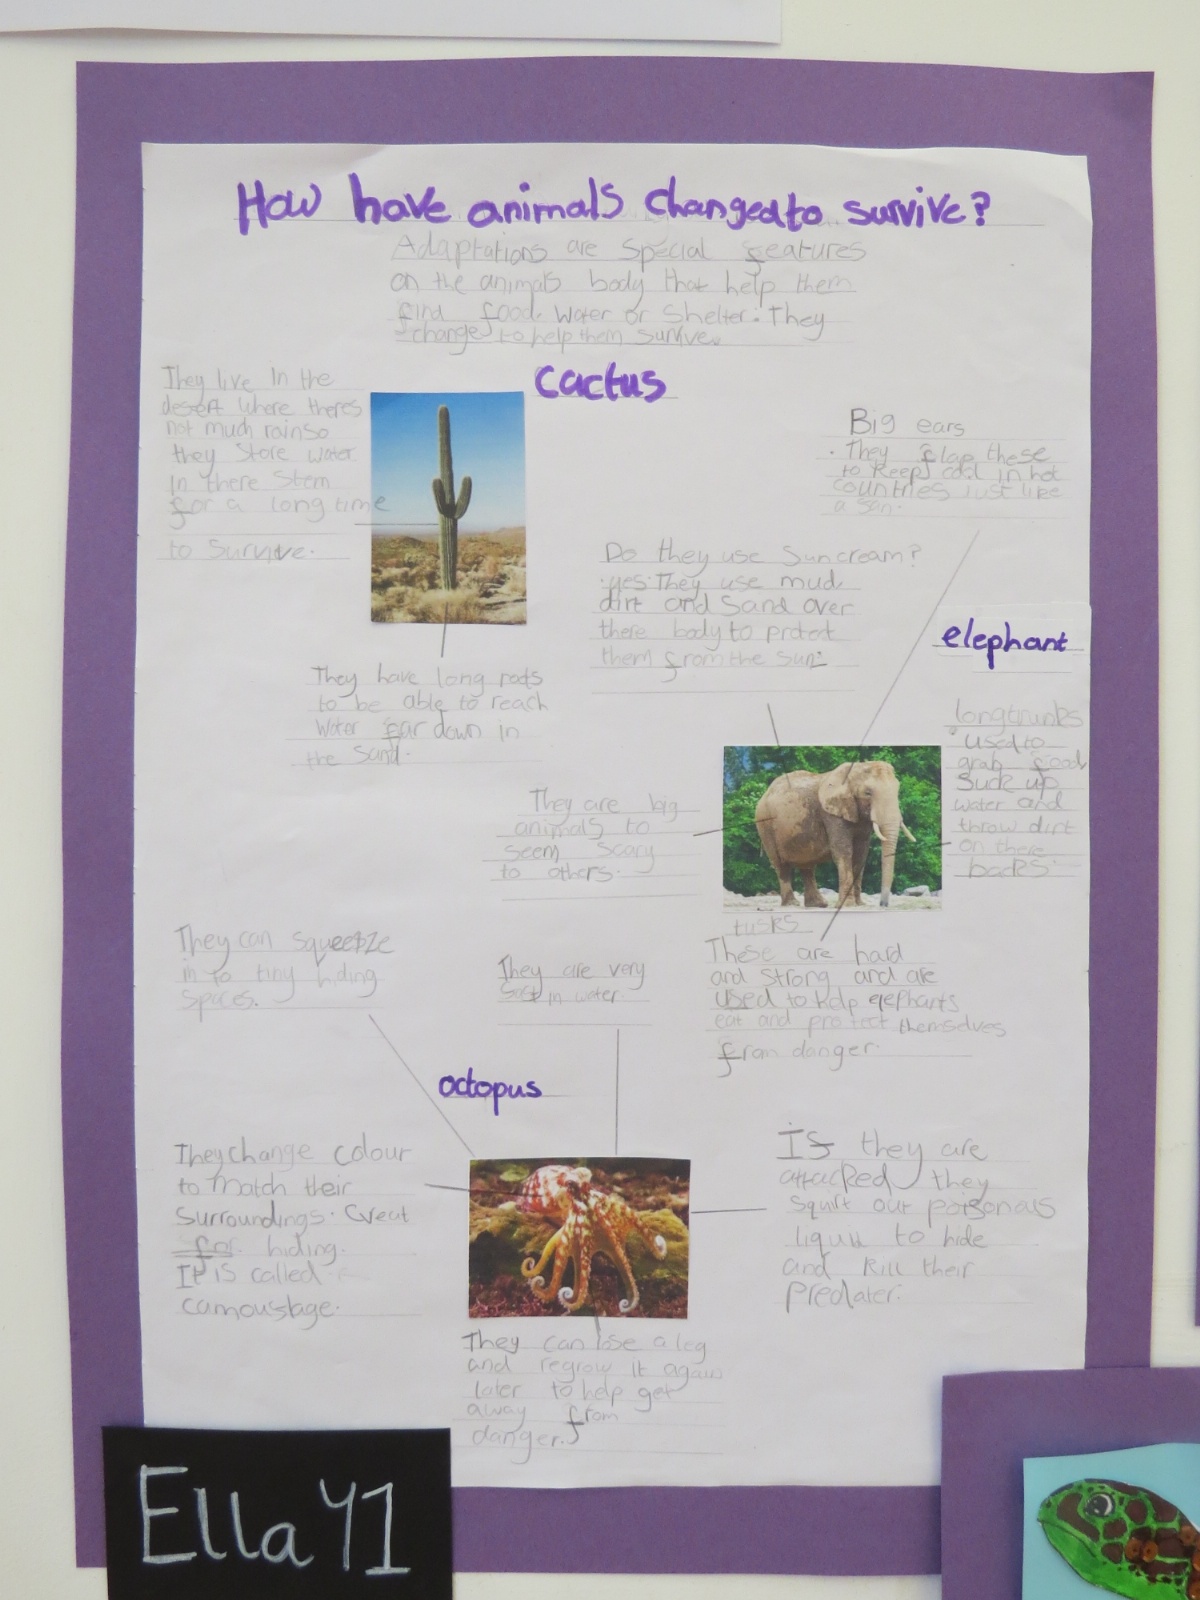 How have animals changed to survive?
Adaptations are special features
on the animals body that help them
find food. Water or Shelter. They
change to help them survive.
cactus
They live in the
desert where theres
not much rain so
they store water
in there stem
for a long time
to survive.
They have long roots
to be able to reach
Water far down in
the sand.
Big ears
. They flap these
to keep cool in hot
countries just like
a fan.
Do they use Suncream?
yes. They use mud
dirt and Sand over
there body to protect
them from the sun.
elephant
long trunks
used to
grab food
suck up
water and
throw dirt
on there
backs.
They are big
animals to
seem scary
to others.
tusks
These are hard
and strong and are
used to help elephants
eat and protect themselves
from danger.
octopus
They can squeeze
in to tiny hiding
spaces.
They are very
fast in water.
They change colour
to match their
surroundings. Great
for hiding.
It is called
camouflage.
If they are
attacked they
squirt out poisonous
liquid to hide
and kill their
predater.
They can lose a leg
and regrow it again
later to help get
away from
danger.
Ella Y1